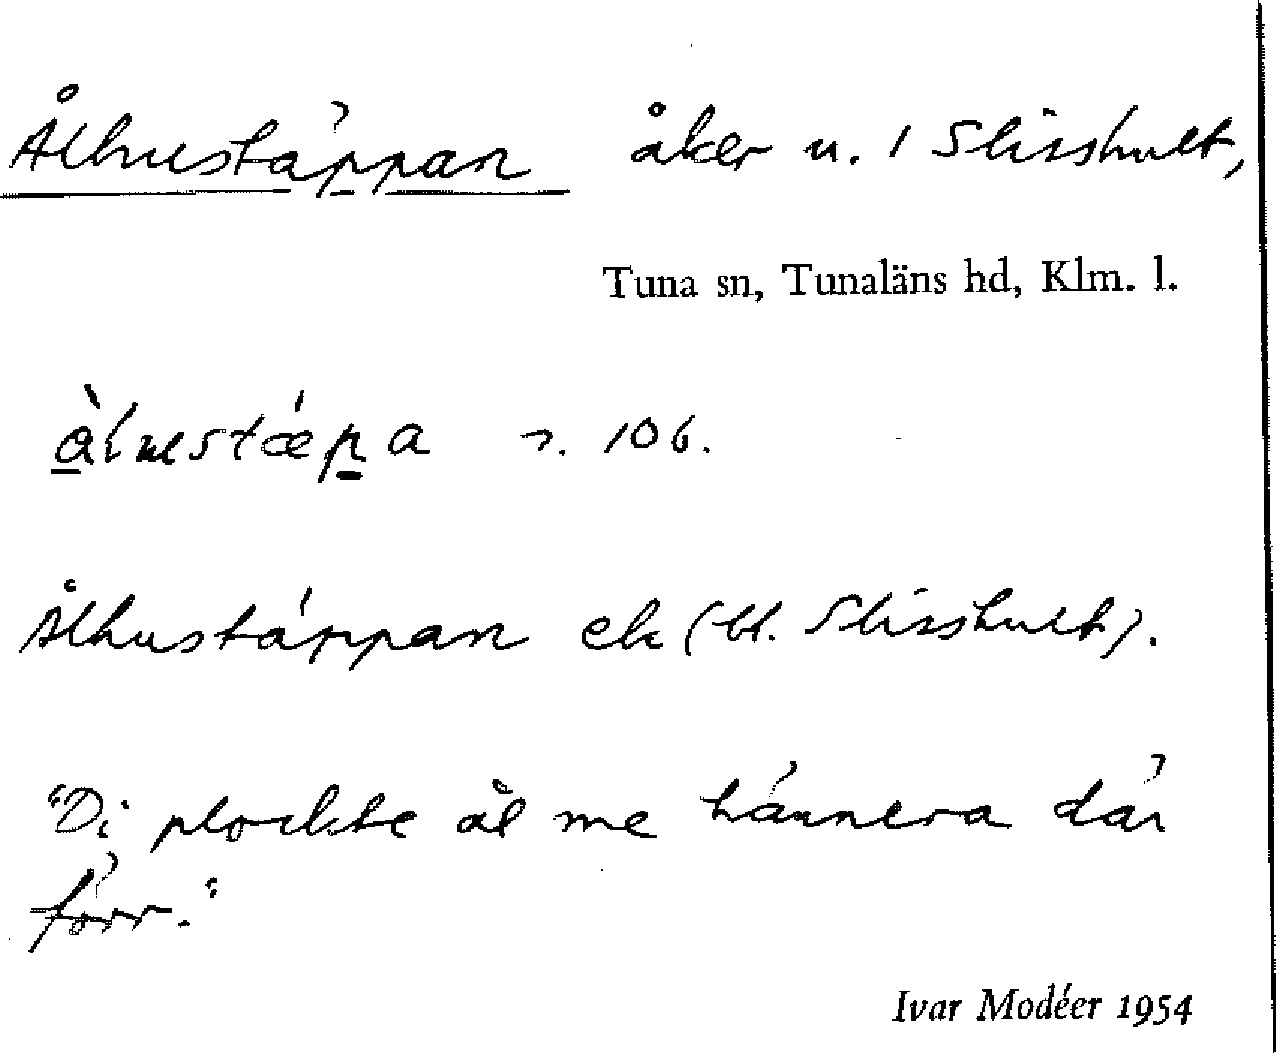 Ålhustäppan åker u. 1 Slisshult,
Tuna sn, Tunaläns hd, Klm. l.
106.
Ålhustäppan ek (bl. Slisshult).
"Di plockte ål me hännera där
förr."
Ivar Modéer 1954